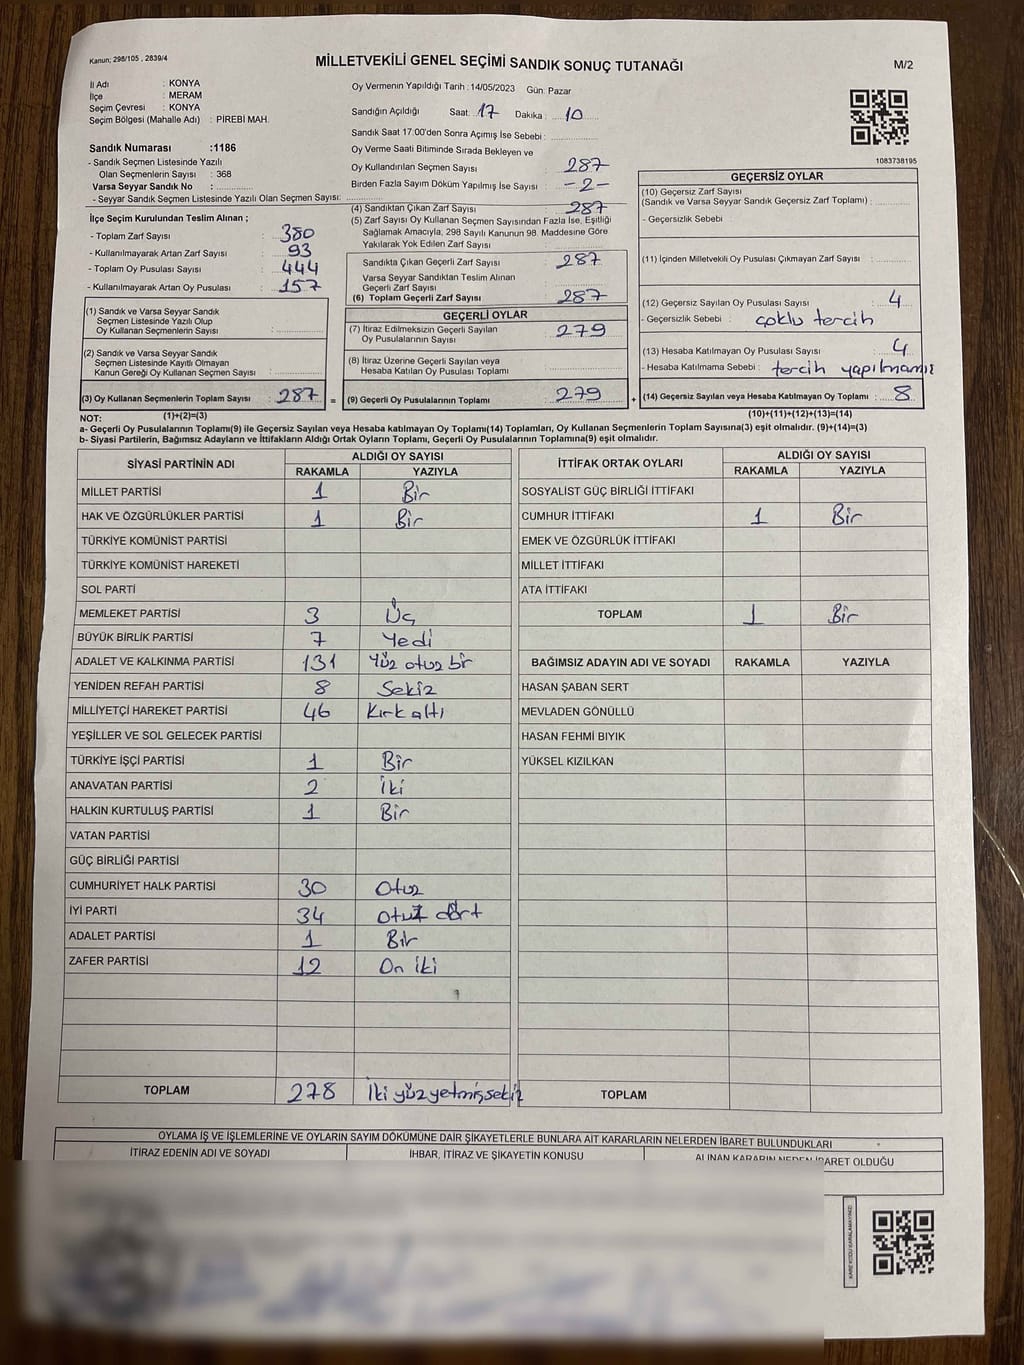 Kanun; 298/105 , 2839/4
MİLLETVEKİLİ GENEL SEÇİMİ SANDIK SONUÇ TUTANAĞI
M/2
İl Adı : KONYA
İlçe : MERAM
Seçim Çevresi : KONYA
Seçim Bölgesi (Mahalle Adı) : PİREBİ MAH.
Sandık Numarası :1186
- Sandık Seçmen Listesinde Yazılı
Olan Seçmenlerin Sayısı : 368
Varsa Seyyar Sandık No :
- Seyyar Sandık Seçmen Listesinde Yazılı Olan Seçmen Sayısı:
İlçe Seçim Kurulundan Teslim Alınan ;
- Toplam Zarf Sayısı : 380
- Kullanılmayarak Artan Zarf Sayısı : 93
- Toplam Oy Pusulası Sayısı : 444
- Kullanılmayarak Artan Oy Pusulası : 157
(1) Sandık ve Varsa Seyyar Sandık
Seçmen Listesinde Yazılı Olup
Oy Kullanan Seçmenlerin Sayısı :
(2) Sandık ve Varsa Seyyar Sandık
Seçmen Listesinde Kayıtlı Olmayan
Kanun Gereği Oy Kullanan Seçmen Sayısı :
(3) Oy Kullanan Seçmenlerin Toplam Sayısı : 287 =
(1)+(2)=(3)
Oy Vermenin Yapıldığı Tarih : 14/05/2023 Gün: Pazar
Sandığın Açıldığı Saat: 17 Dakika : 10
Sandık Saat 17:00'den Sonra Açımış İse Sebebi :
Oy Verme Saati Bitiminde Sırada Bekleyen ve
Oy Kullandırılan Seçmen Sayısı : 287
Birden Fazla Sayım Döküm Yapılmış İse Sayısı : -2-
(4) Sandıktan Çıkan Zarf Sayısı : 287
(5) Zarf Sayısı Oy Kullanan Seçmen Sayısından Fazla İse, Eşitliği
Sağlamak Amacıyla, 298 Sayılı Kanunun 98. Maddesine Göre
Yakılarak Yok Edilen Zarf Sayısı :
Sandıkta Çıkan Geçerli Zarf Sayısı : 287
Varsa Seyyar Sandıktan Teslim Alınan
Geçerli Zarf Sayısı :
(6) Toplam Geçerli Zarf Sayısı : 287
GEÇERLİ OYLAR
(7) İtiraz Edilmeksizin Geçerli Sayılan
Oy Pusulalarının Sayısı : 279
(8) İtiraz Üzerine Geçerli Sayılan veya
Hesaba Katılan Oy Pusulası Toplamı :
(9) Geçerli Oy Pusulalarının Toplamı : 279 +
1083738195
GEÇERSİZ OYLAR
(10) Geçersiz Zarf Sayısı
(Sandık ve Varsa Seyyar Sandık Geçersiz Zarf Toplamı) :
- Geçersizlik Sebebi :
(11) İçinden Milletvekili Oy Pusulası Çıkmayan Zarf Sayısı :
(12) Geçersiz Sayılan Oy Pusulası Sayısı : 4
- Geçersizlik Sebebi : çoklu tercih
(13) Hesaba Katılmayan Oy Pusulası Sayısı : 4
- Hesaba Katılmama Sebebi : tercih yapılmamış
(14) Geçersiz Sayılan veya Hesaba Katılmayan Oy Toplamı : 8
(10)+(11)+(12)+(13)=(14)
NOT:
a- Geçerli Oy Pusulalarının Toplamı(9) ile Geçersiz Sayılan veya Hesaba katılmayan Oy Toplamı(14) Toplamları, Oy Kullanan Seçmenlerin Toplam Sayısına(3) eşit olmalıdır. (9)+(14)=(3)
b- Siyasi Partilerin, Bağımsız Adayların ve İttifakların Aldığı Ortak Oyların Toplamı, Geçerli Oy Pusulalarının Toplamına(9) eşit olmalıdır.
SİYASİ PARTİNİN ADI ALDIĞI OY SAYISI
RAKAMLA YAZIYLA
MİLLET PARTİSİ 1 Bir
HAK VE ÖZGÜRLÜKLER PARTİSİ 1 Bir
TÜRKİYE KOMÜNİST PARTİSİ
TÜRKİYE KOMÜNİST HAREKETİ
SOL PARTİ
MEMLEKET PARTİSİ 3 Üç
BÜYÜK BİRLİK PARTİSİ 7 Yedi
ADALET VE KALKINMA PARTİSİ 131 Yüz otuz bir
YENİDEN REFAH PARTİSİ 8 Sekiz
MİLLİYETÇİ HAREKET PARTİSİ 46 Kırk altı
YEŞİLLER VE SOL GELECEK PARTİSİ
TÜRKİYE İŞÇİ PARTİSİ 1 Bir
ANAVATAN PARTİSİ 2 İki
HALKIN KURTULUŞ PARTİSİ 1 Bir
VATAN PARTİSİ
GÜÇ BİRLİĞİ PARTİSİ
CUMHURİYET HALK PARTİSİ 30 Otuz
İYİ PARTİ 34 otuz dört
ADALET PARTİSİ 1 Bir
ZAFER PARTİSİ 12 On iki
TOPLAM 278 İki yüz yetmiş sekiz
İTTİFAK ORTAK OYLARI ALDIĞI OY SAYISI
RAKAMLA YAZIYLA
SOSYALİST GÜÇ BİRLİĞİ İTTİFAKI
CUMHUR İTTİFAKI 1 Bir
EMEK VE ÖZGÜRLÜK İTTİFAKI
MİLLET İTTİFAKI
ATA İTTİFAKI
TOPLAM 1 Bir
BAĞIMSIZ ADAYIN ADI VE SOYADI RAKAMLA YAZIYLA
HASAN ŞABAN SERT
MEVLADEN GÖNÜLLÜ
HASAN FEHMİ BIYIK
YÜKSEL KIZILKAN
TOPLAM
OYLAMA İŞ VE İŞLEMLERİNE VE OYLARIN SAYIM DÖKÜMÜNE DAİR ŞİKAYETLERLE BUNLARA AİT KARARLARIN NELERDEN İBARET BULUNDUKLARI
İTİRAZ EDENİN ADI VE SOYADI İHBAR, İTİRAZ VE ŞİKAYETİN KONUSU ALINAN KARARIN NEDEN İBARET OLDUĞU
KARE KODU KARALAMAYINIZ!